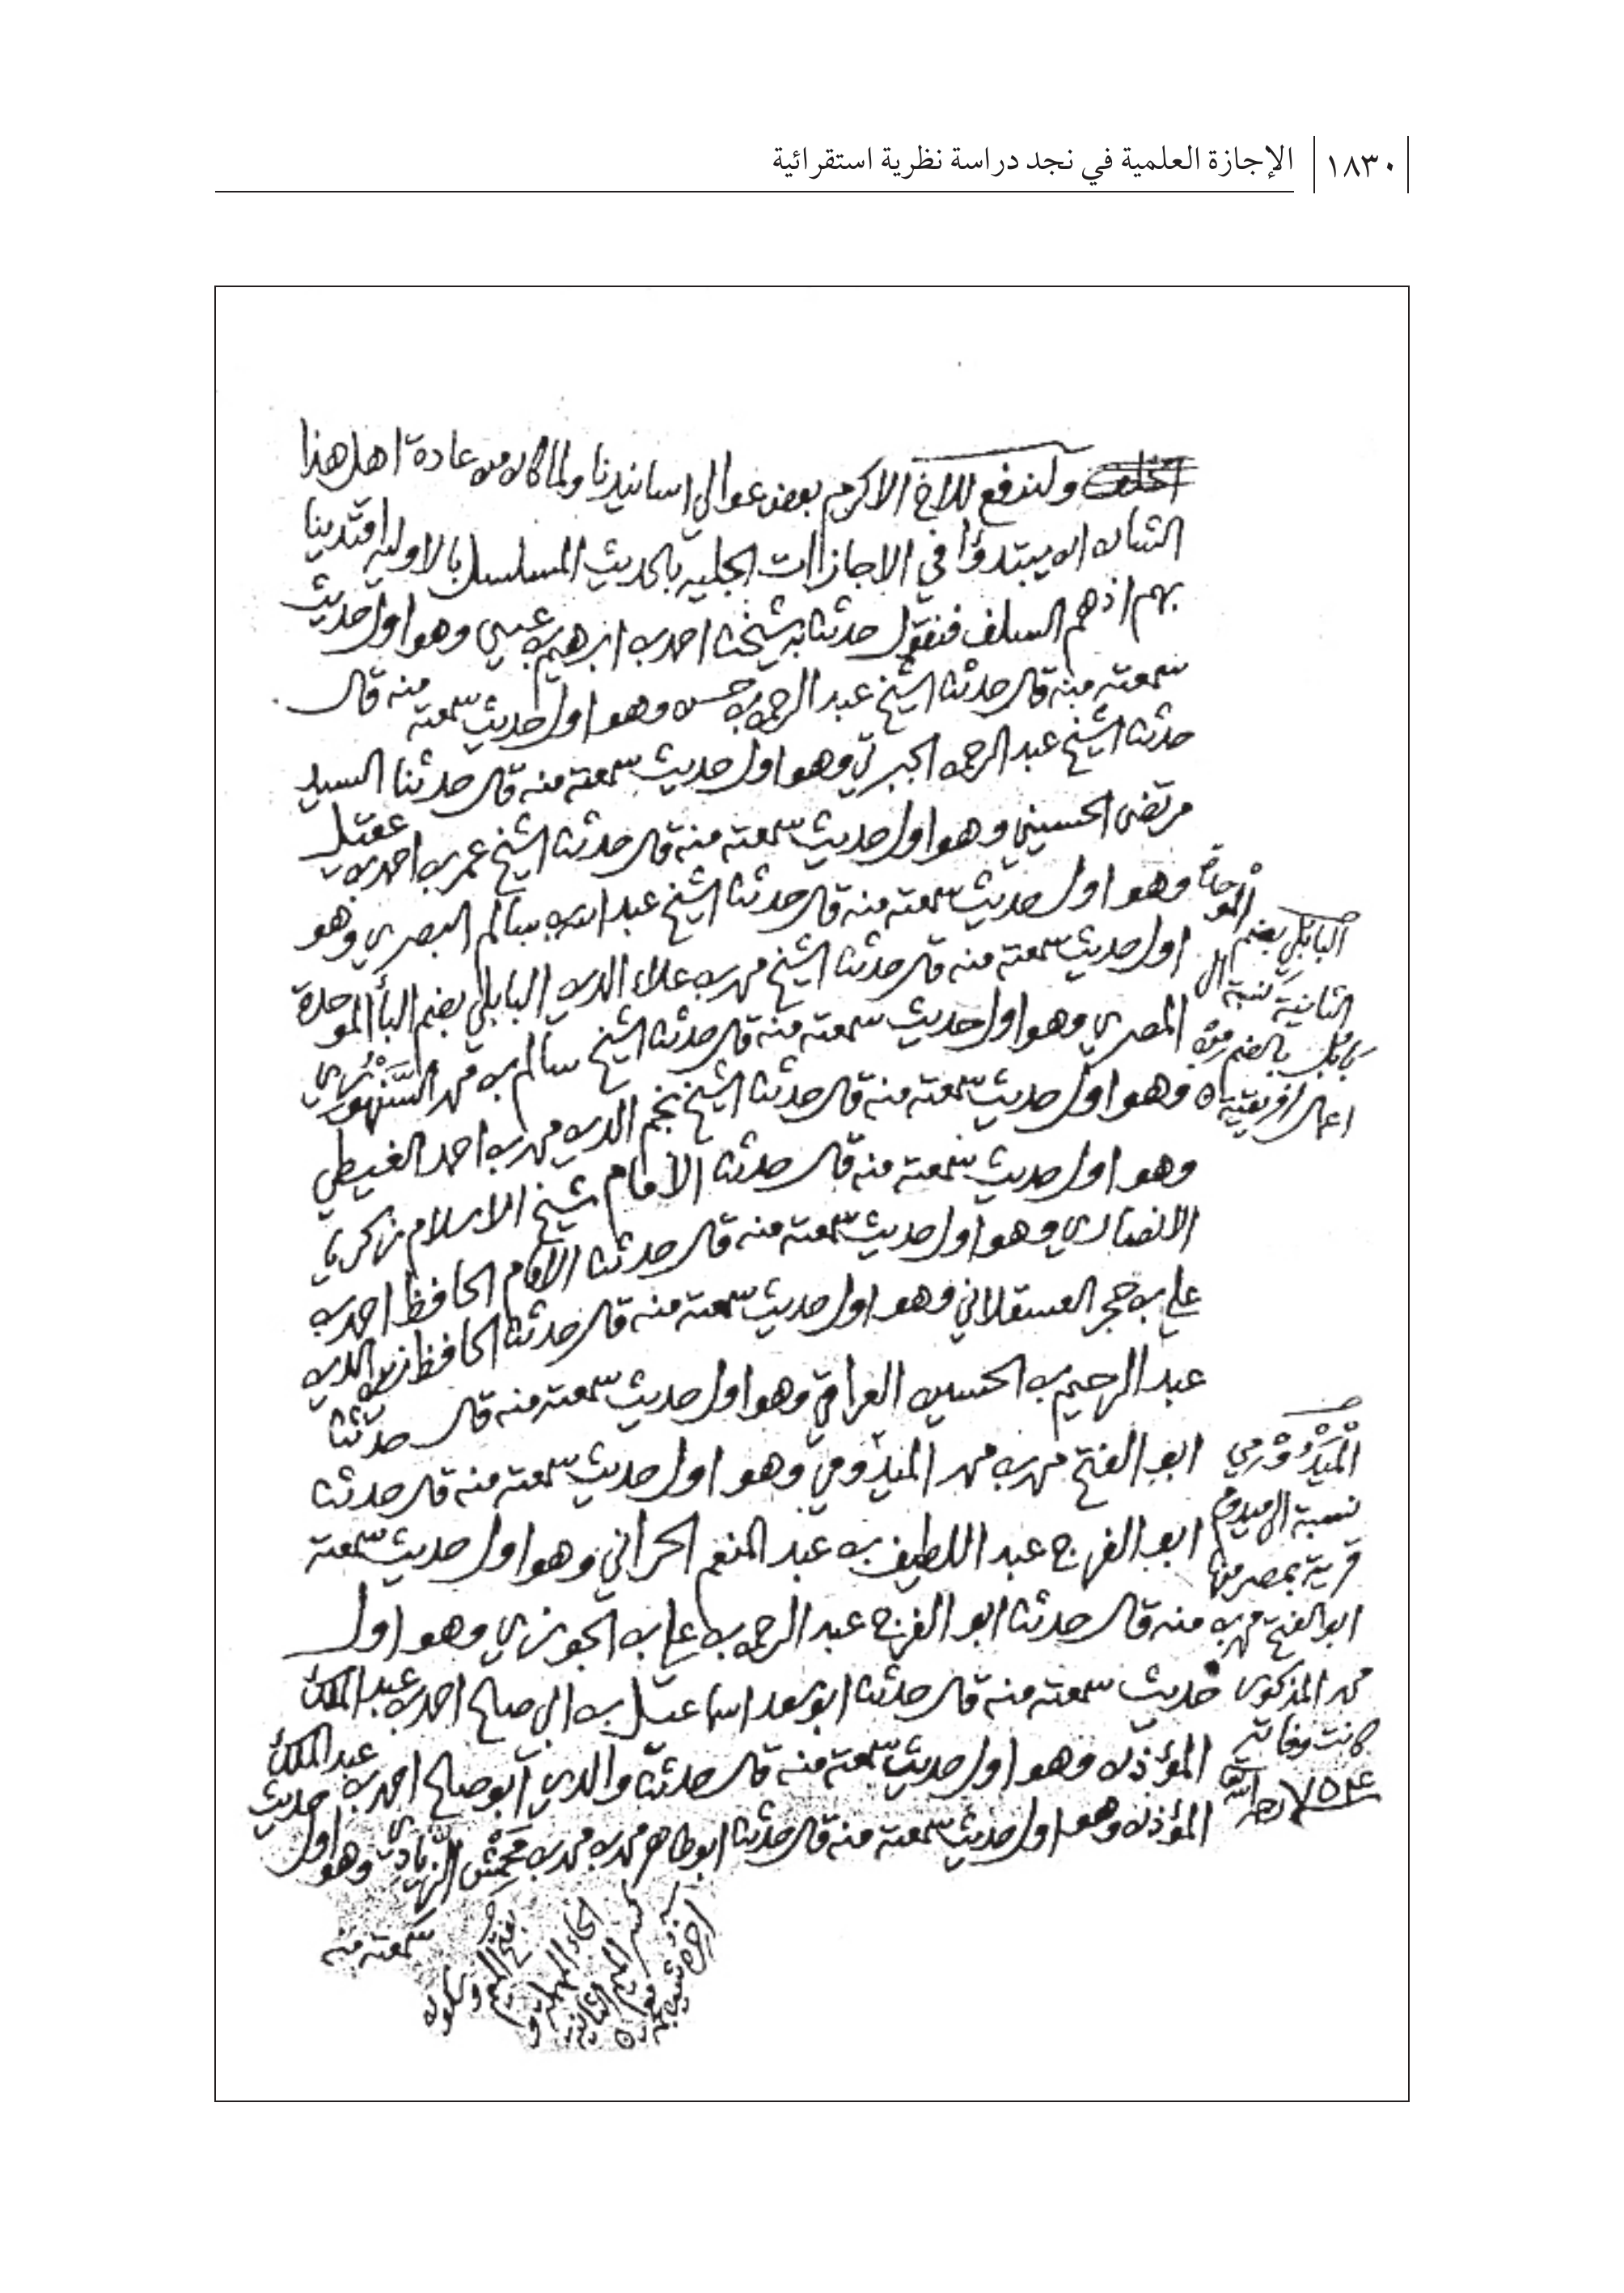 ١٨٣٠ الإجازة العلمية في نجد دراسة نظرية استقرائية
ولندفع للاخ الاكرم بعض عوالي اسانيدنا ولما كان من عادة اهل هذا
الشان ان يبتدؤا في الاجازات الجليه بالحديث المسلسل بالاوليه اقتدينا
بهم اذ هم السلف فنقول حدثنا به شيخنا احمد بن ابرهيم بن عيسى وهو اول حديث
سمعته منه قال حدثنا الشيخ عبد الرحمن بن حسن وهو اول حديث سمعته منه قال
حدثنا الشيخ عبد الرحمن الجبرتي وهو اول حديث سمعته منه قال حدثنا السيد
مرتضى الحسيني وهو اول حديث سمعته منه قال حدثنا الشيخ عمر بن احمد بن عقيل
وهو اول حديث سمعته منه قال حدثنا الشيخ عبد الله بن سالم البصري وهو
اول حديث سمعته منه قال حدثنا الشيخ محمد بن علاء الدين البابلي بضم البأ الموحدة
المصري وهو اول حديث سمعته منه قال حدثنا الشيخ سالم بن محمد السنهوري
وهو اول حديث سمعته منه قال حدثنا الشيخ نجم الدين محمد بن احمد الغيطي
وهو اول حديث سمعته منه قال حدثنا الامام شيخ الاسلام زكريا
الانصاري وهو اول حديث سمعته منه قال حدثنا الامام الحافظ احمد بن
علي بن حجر العسقلاني وهو اول حديث سمعته منه قال حدثنا الحافظ زين الدين
عبد الرحيم بن الحسين العراقي وهو اول حديث سمعته منه قال حدثنا
ابو الفتح محمد بن محمد الميدومي وهو اول حديث سمعته منه قال حدثنا
ابو الفرج عبد اللطيف بن عبد المنعم الحراني وهو اول حديث سمعته
منه قال حدثنا ابو الفرج عبد الرحمن بن علي بن الجوزي وهو اول
حديث سمعته منه قال حدثنا ابو سعد اسماعيل بن ابي صالح احمد بن عبد الملك
المؤذن وهو اول حديث سمعته منه قال حدثنا والدي ابو صالح احمد بن عبد الملك
المؤذن وهو اول حديث سمعته منه قال حدثنا ابو طاهر محمد بن محمد بن محمش الزيادي وهو اول حديث
سمعته منه
البابلي بضم الموحدة
الثانية نسبة الى
بابل بالضم
اعمال افريقية
الميدومي
نسبة الى ميدوم
قرية بمصر منها
ابو الفتح محمد بن
محمد المذكور
كانت وفاته
٧٥٤ رحمه الله
بفتح الميم وسكون
الحاء المهملة و
كسر الميم الثانية
اخره شين معجمة